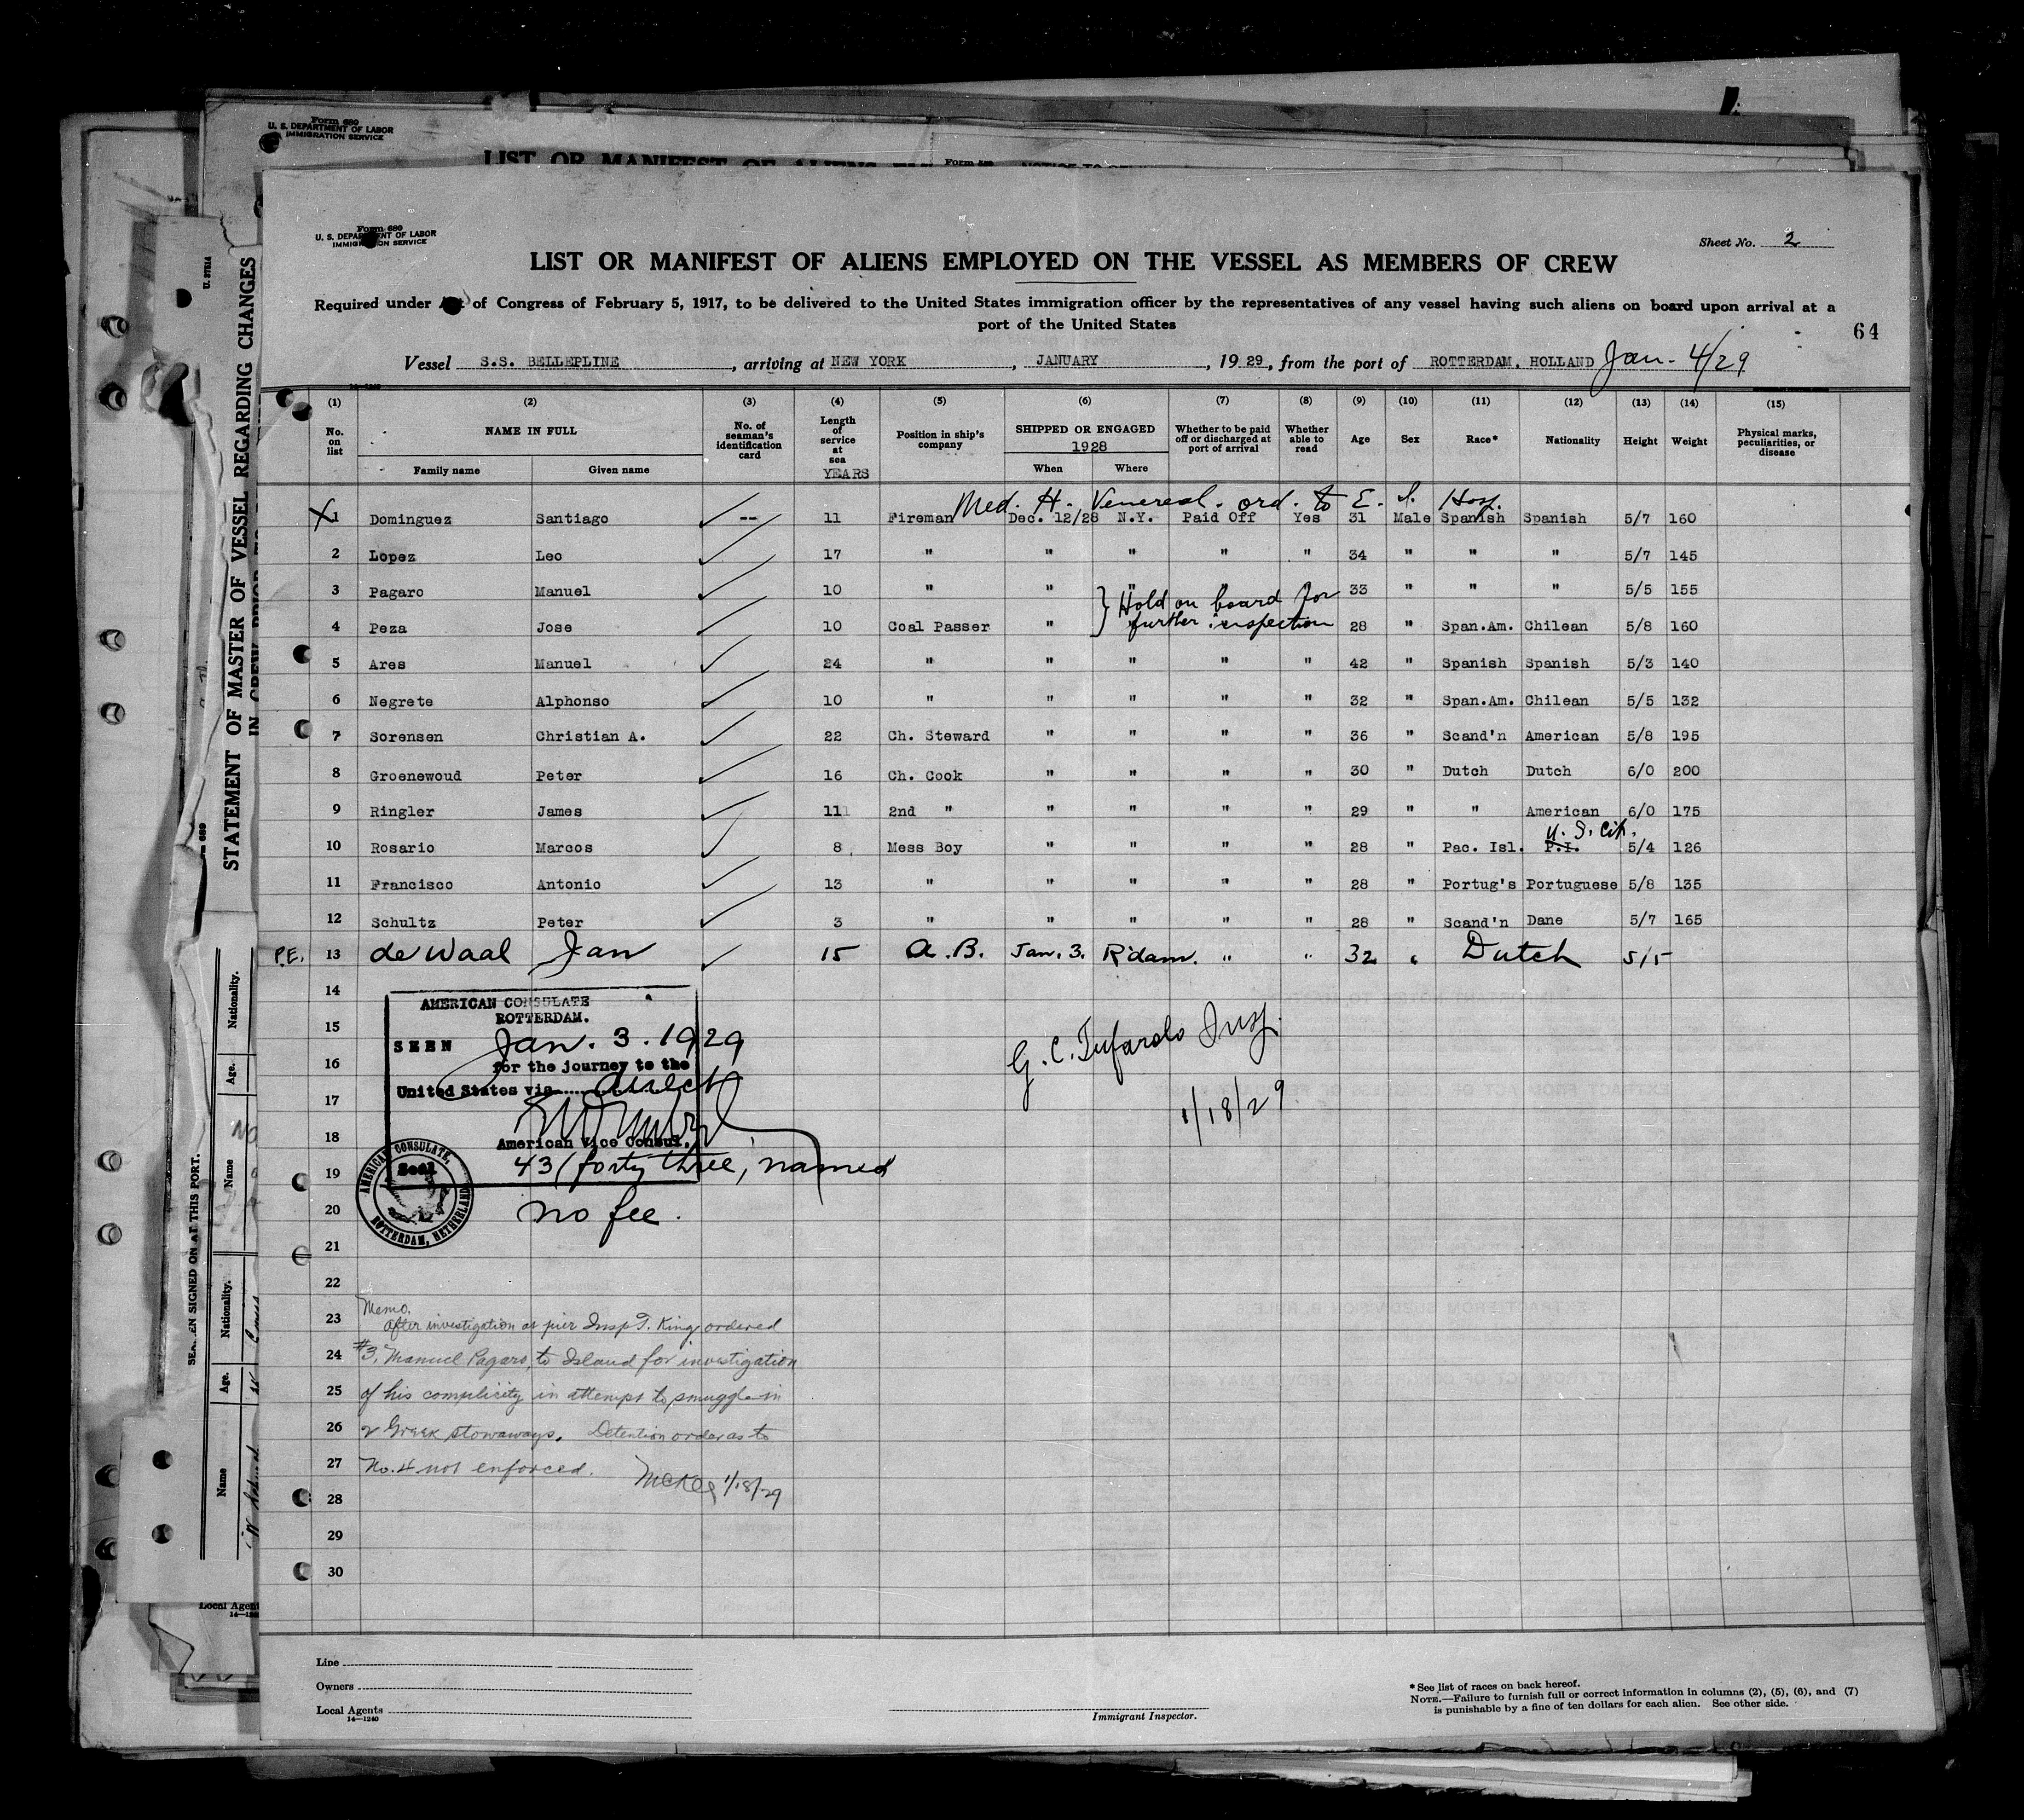 Form 680
U. S. DEPARTMENT OF LABOR
IMMIGRATION SERVICE
LIST OR MANIFEST OF ALIENS
Form 680
U. S. DEPARTMENT OF LABOR
IMMIGRATION SERVICE
Sheet No. 2
LIST OR MANIFEST OF ALIENS EMPLOYED ON THE VESSEL AS MEMBERS OF CREW
Required under Act of Congress of February 5, 1917, to be delivered to the United States immigration officer by the representatives of any vessel having such aliens on board upon arrival at a
port of the United States
64
Vessel S.S. BELLEPLINE, arriving at NEW YORK, JANUARY, 1929, from the port of ROTTERDAM, HOLLAND Jan - 4/29
14—1240
(1) (2) (3) (4) (5) (6) (7) (8) (9) (10) (11) (12) (13) (14) (15)
No. on list NAME IN FULL Family name Given name No. of seaman's identification card Length of service at sea YEARS Position in ship's company SHIPPED OR ENGAGED 1928 When Where Whether to be paid off or discharged at port of arrival Whether able to read Age Sex Race* Nationality Height Weight Physical marks, peculiarities, or disease
Med. H. Venereal. ord. to E. I. Hosp.
X 1 Dominguez Santiago ✓ -- 11 Fireman Dec. 12/28 N.Y. Paid Off Yes 31 Male Spanish Spanish 5/7 160
2 Lopez Leo ✓ 17 " " " " " 34 " " " 5/7 145
3 Pagaro Manuel ✓ 10 " " " 33 " " " 5/5 155
} Hold on board for
further inspection
4 Peza Jose ✓ 10 Coal Passer " 28 " Span.Am. Chilean 5/8 160
5 Ares Manuel ✓ 24 " " " " " 42 " Spanish Spanish 5/3 140
6 Negrete Alphonso ✓ 10 " " " " " 32 " Span.Am. Chilean 5/5 132
7 Sorensen Christian A. ✓ 22 Ch. Steward " " " " 36 " Scand'n American 5/8 195
8 Groenewoud Peter ✓ 16 Ch. Cook " " " " 30 " Dutch Dutch 6/0 200
9 Ringler James ✓ 11 2nd " " " " " 29 " " American 6/0 175
U. S. Cit.
10 Rosario Marcos ✓ 8 Mess Boy " " " " 28 " Pac. Isl. P.I. 5/4 126
11 Francisco Antonio ✓ 13 " " " " " 28 " Portug's Portuguese 5/8 135
12 Schultz Peter ✓ 3 " " " " " 28 " Scand'n Dane 5/7 165
P.E. 13 de Waal Jan ✓ 15 A.B. Jan. 3. R'dam. " " 32 " Dutch 5/5
14
15
16
17
18
19
20
21
22
23
24
25
26
27
28
29
30
AMERICAN CONSULATE
ROTTERDAM.
SEEN Jan. 3. 1929
for the journey to the
United States via direct
American Vice Consul.
43 (forty three) named
Seal
AMERICAN CONSULATE, ROTTERDAM, NETHERLAND
no fee.
G. C. Tufarolo Insp.
1/18/29
Memo.
After investigation at pier Insp T. King ordered
#3, Manuel Pagaro, to Island for investigation
of his complicity in attempt to smuggle in
2 Greek stowaways. Detention order as to
No. 4 not enforced. McKee 1/18/29
Line
Owners
Local Agents
14—1240
Immigrant Inspector.
* See list of races on back hereof.
NOTE.—Failure to furnish full or correct information in columns (2), (5), (6), and (7)
is punishable by a fine of ten dollars for each alien. See other side.
STATEMENT OF MASTER OF VESSEL REGARDING CHANGES
SEAMEN SIGNED ON AT THIS PORT.
Nationality.
Age.
Name
Nationality.
Age.
Name
Local Agent